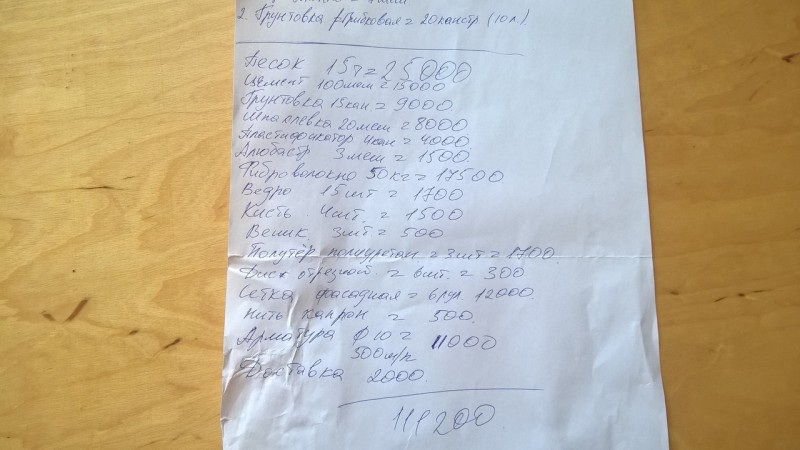 2. Грунтовка грибковая = 20канистр (10л.)
Песок 15т = 25000
Цемент 100меш = 15000
Грунтовка 15кан = 9000
Шпаклевка 20меш = 8000
Пластификатор 4кан = 4000
Алюбастр 3меш = 1500
Фиброволокно 50кг = 17500
Ведро 15шт = 1700
Кисть 4шт. = 1500
Веник 3шт = 500
Полутёр полиуретан = 3шт = 1700.
Диск отрезной = 6шт. = 300
Сетка фасадная = 6рул. 12000.
Нить капрон = 500.
Арматура Ф10 = 11000
500м/п
Доставка 2000.
111200